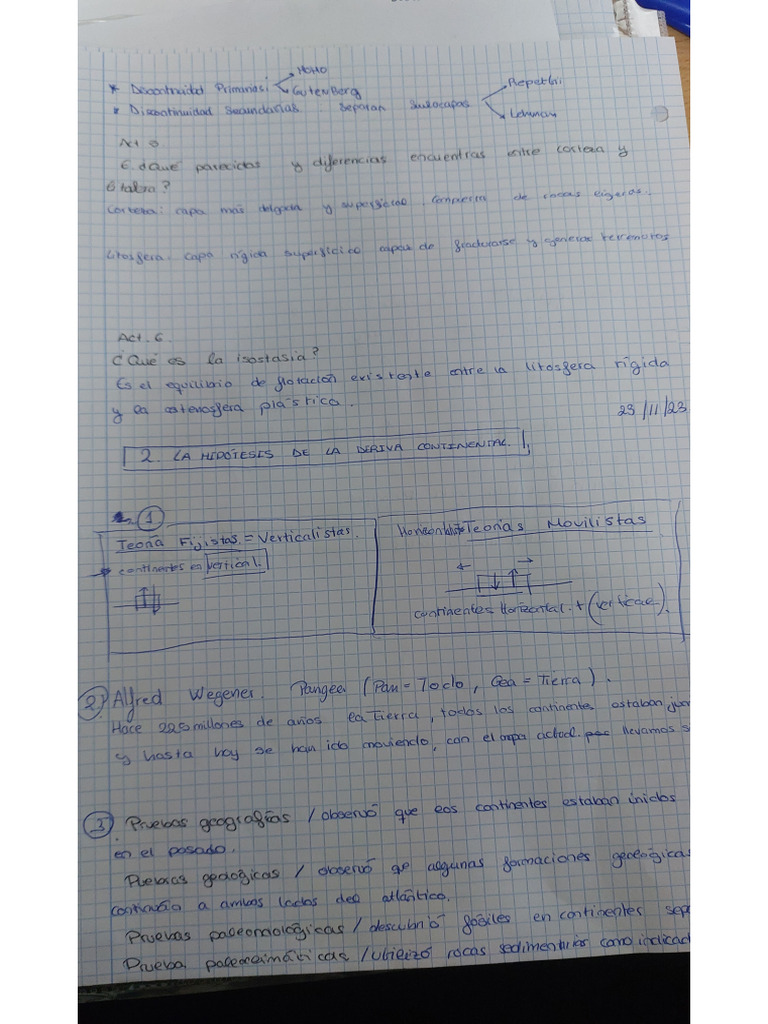 MOHO
* Discontinuidad Primarias: Gutenberg
Repetti
* Discontinuidad Secundarias separan subcapas
Lehman
Act 5
¿Qué parecidas y diferencias encuentras entre corteza y
Corteza: capa más delgada y superficial, de rocas ligeras.
Litosfera. capa rígida superficico capas de fracturarse y generar terremotos
Act. 6
¿Qué es la isostasia?
Es el equilibrio de flotación existente entre la litosfera rígida
y la astenosfera plástica.
23/11/23
2. LA HIPÓTESIS DE LA DERIVA CONTINENTAL.
1
Teoría Fijistas = Verticalistas.
continentes en vertical.
Teorías Movilistas
continentes Horizontal. + (vertical).
2) Alfred Wegener. Pangea (Pan = Todo, Gea = Tierra).
Hace 225 millones de años la Tierra, todos los continentes estaban
y hasta hoy se han ido moviendo, con el mapa actual. llevamos
3 Pruebas geografías / observó que los continentes estaban unidos
en el pasado.
Puebras geológicas / observó qe algunas formaciones geológicas
continuaba a ambos lados del atlántico.
Pruebas paleontológicas / descubrió fósiles en continentes
Prueba paleoclimáticas / utilizó rocas sedimentarias como